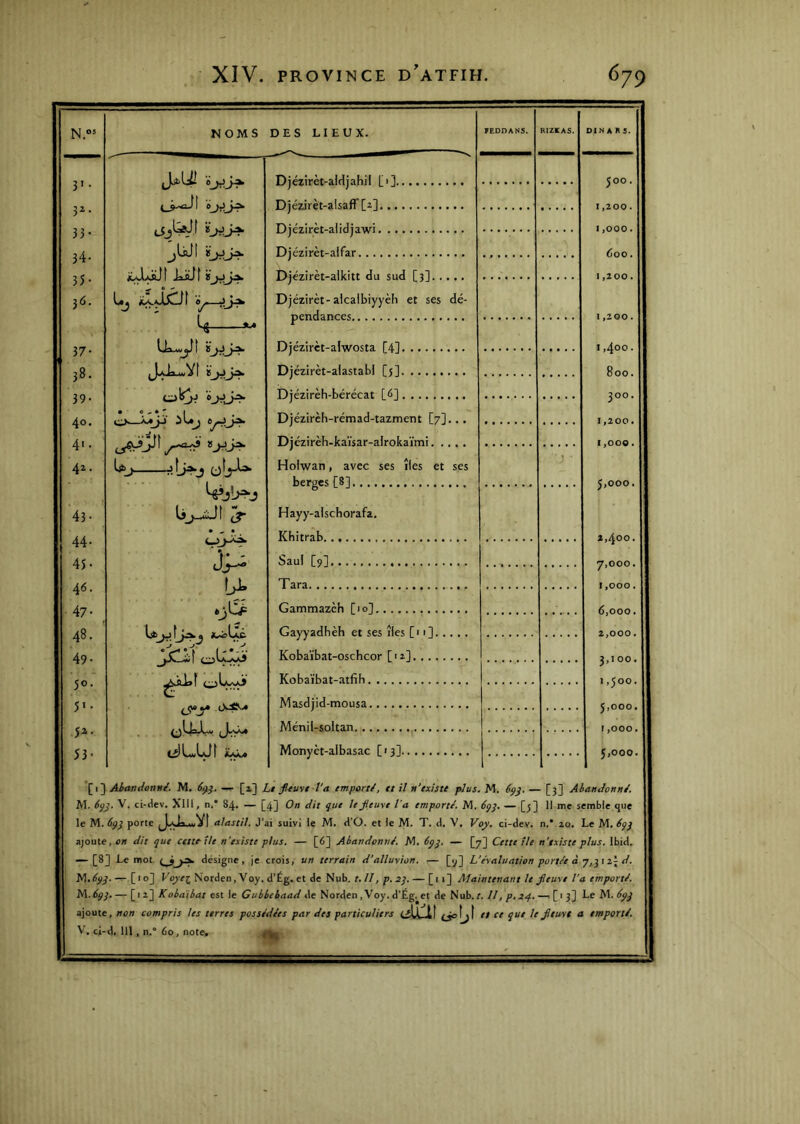 XIV. PROVINCE D'ATFIH. 679
N.os NOMS DES LIEUX. FEDDANS. RIZKAS. DINARS.
31. جزيرة الجاهل Djézirèt-aldjahil [1].......... 500.
32. جزيرة الصف Djézirèt-alsaff [2].......... 1,200.
33. Djézirèt-alidjawi.......... 1,000.
34. جزيرة الفار Djézirèt-alfar.......... 600.
35. Djézirèt-alkitt du sud [3]..... 1,200.
36. جزيرة الكلبية وما Djézirèt-alcalbiyyèh et ses dé-
معها pendances.......... 1,200.
37. جزيرة الوسطا Djézirèt-alwosta [4].......... 1,400.
38. جزيرة الاسطبل Djézirèt-alastabl [5].......... 800.
39. جزيرة بركات Djézirèh-bérécat [6].......... 300.
40. Djézirèh-rémad-tazment [7]... 1,200.
41. Djézirèh-kaïsar-alrokaïmi..... 1,000.
42. حلوان وجزايرها Holwan, avec ses îles et ses
وجرافها berges [8].......... 5,000.
43. حي الشرفا Hayy-alschorafa.
44. Khitrab.......... 2,400.
45. صول Saul [9].......... 7,000.
46. طرا Tara.......... 1,000.
47. غمازه Gammazèh [10].......... 6,000.
48. غياضه وجزايرها Gayyadhèh et ses îles [11]..... 2,000.
49. قبيبات اشكر Kobaïbat-oschcor [12]........ 3,100.
50. قبيبات اطفيح Kobaïbat-atfih.......... 1,500.
51. مسجد موسى Masdjid-mousa.......... 5,000.
52. منيل سلطان Ménil-soltan.......... 1,000.
53. منية الباساك Monyèt-albasac [13].......... 5,000.
[1] Abandonné. M. 693. — [2] Le fleuve l'a emporté, et il n'existe plus. M. 693. — [3] Abandonné.
M. 693. V. ci-dev. XIII, n.° 84. — [4] On dit que le fleuve l'a emporté. M. 693. — [5] Il me semble que
le M. 693 porte الاسطيل alastil. J'ai suivi le M. d'O. et le M. T. d. V. Voy. ci-dev. n.° 20. Le M. 693
ajoute, on dit que cette île n'existe plus. — [6] Abandonné. M. 693. — [7] Cette île n'existe plus. Ibid.
— [8] Le mot جرف désigne, je crois, un terrain d'alluvion. — [9] L'évaluation portée à 7,312½ d.
M. 693. — [10] Voyez Norden, Voy. d'Ég. et de Nub. t. II, p. 23. — [11] Maintenant le fleuve l'a emporté.
M. 693. — [12] Kobaïbat est le Gubbebaad de Norden, Voy. d'Ég. et de Nub. t. II, p. 24. — [13] Le M. 693
ajoute, non compris les terres possédées par des particuliers اراضى الملك et ce que le fleuve a emporté.
V. ci-d. III, n.° 60, note.